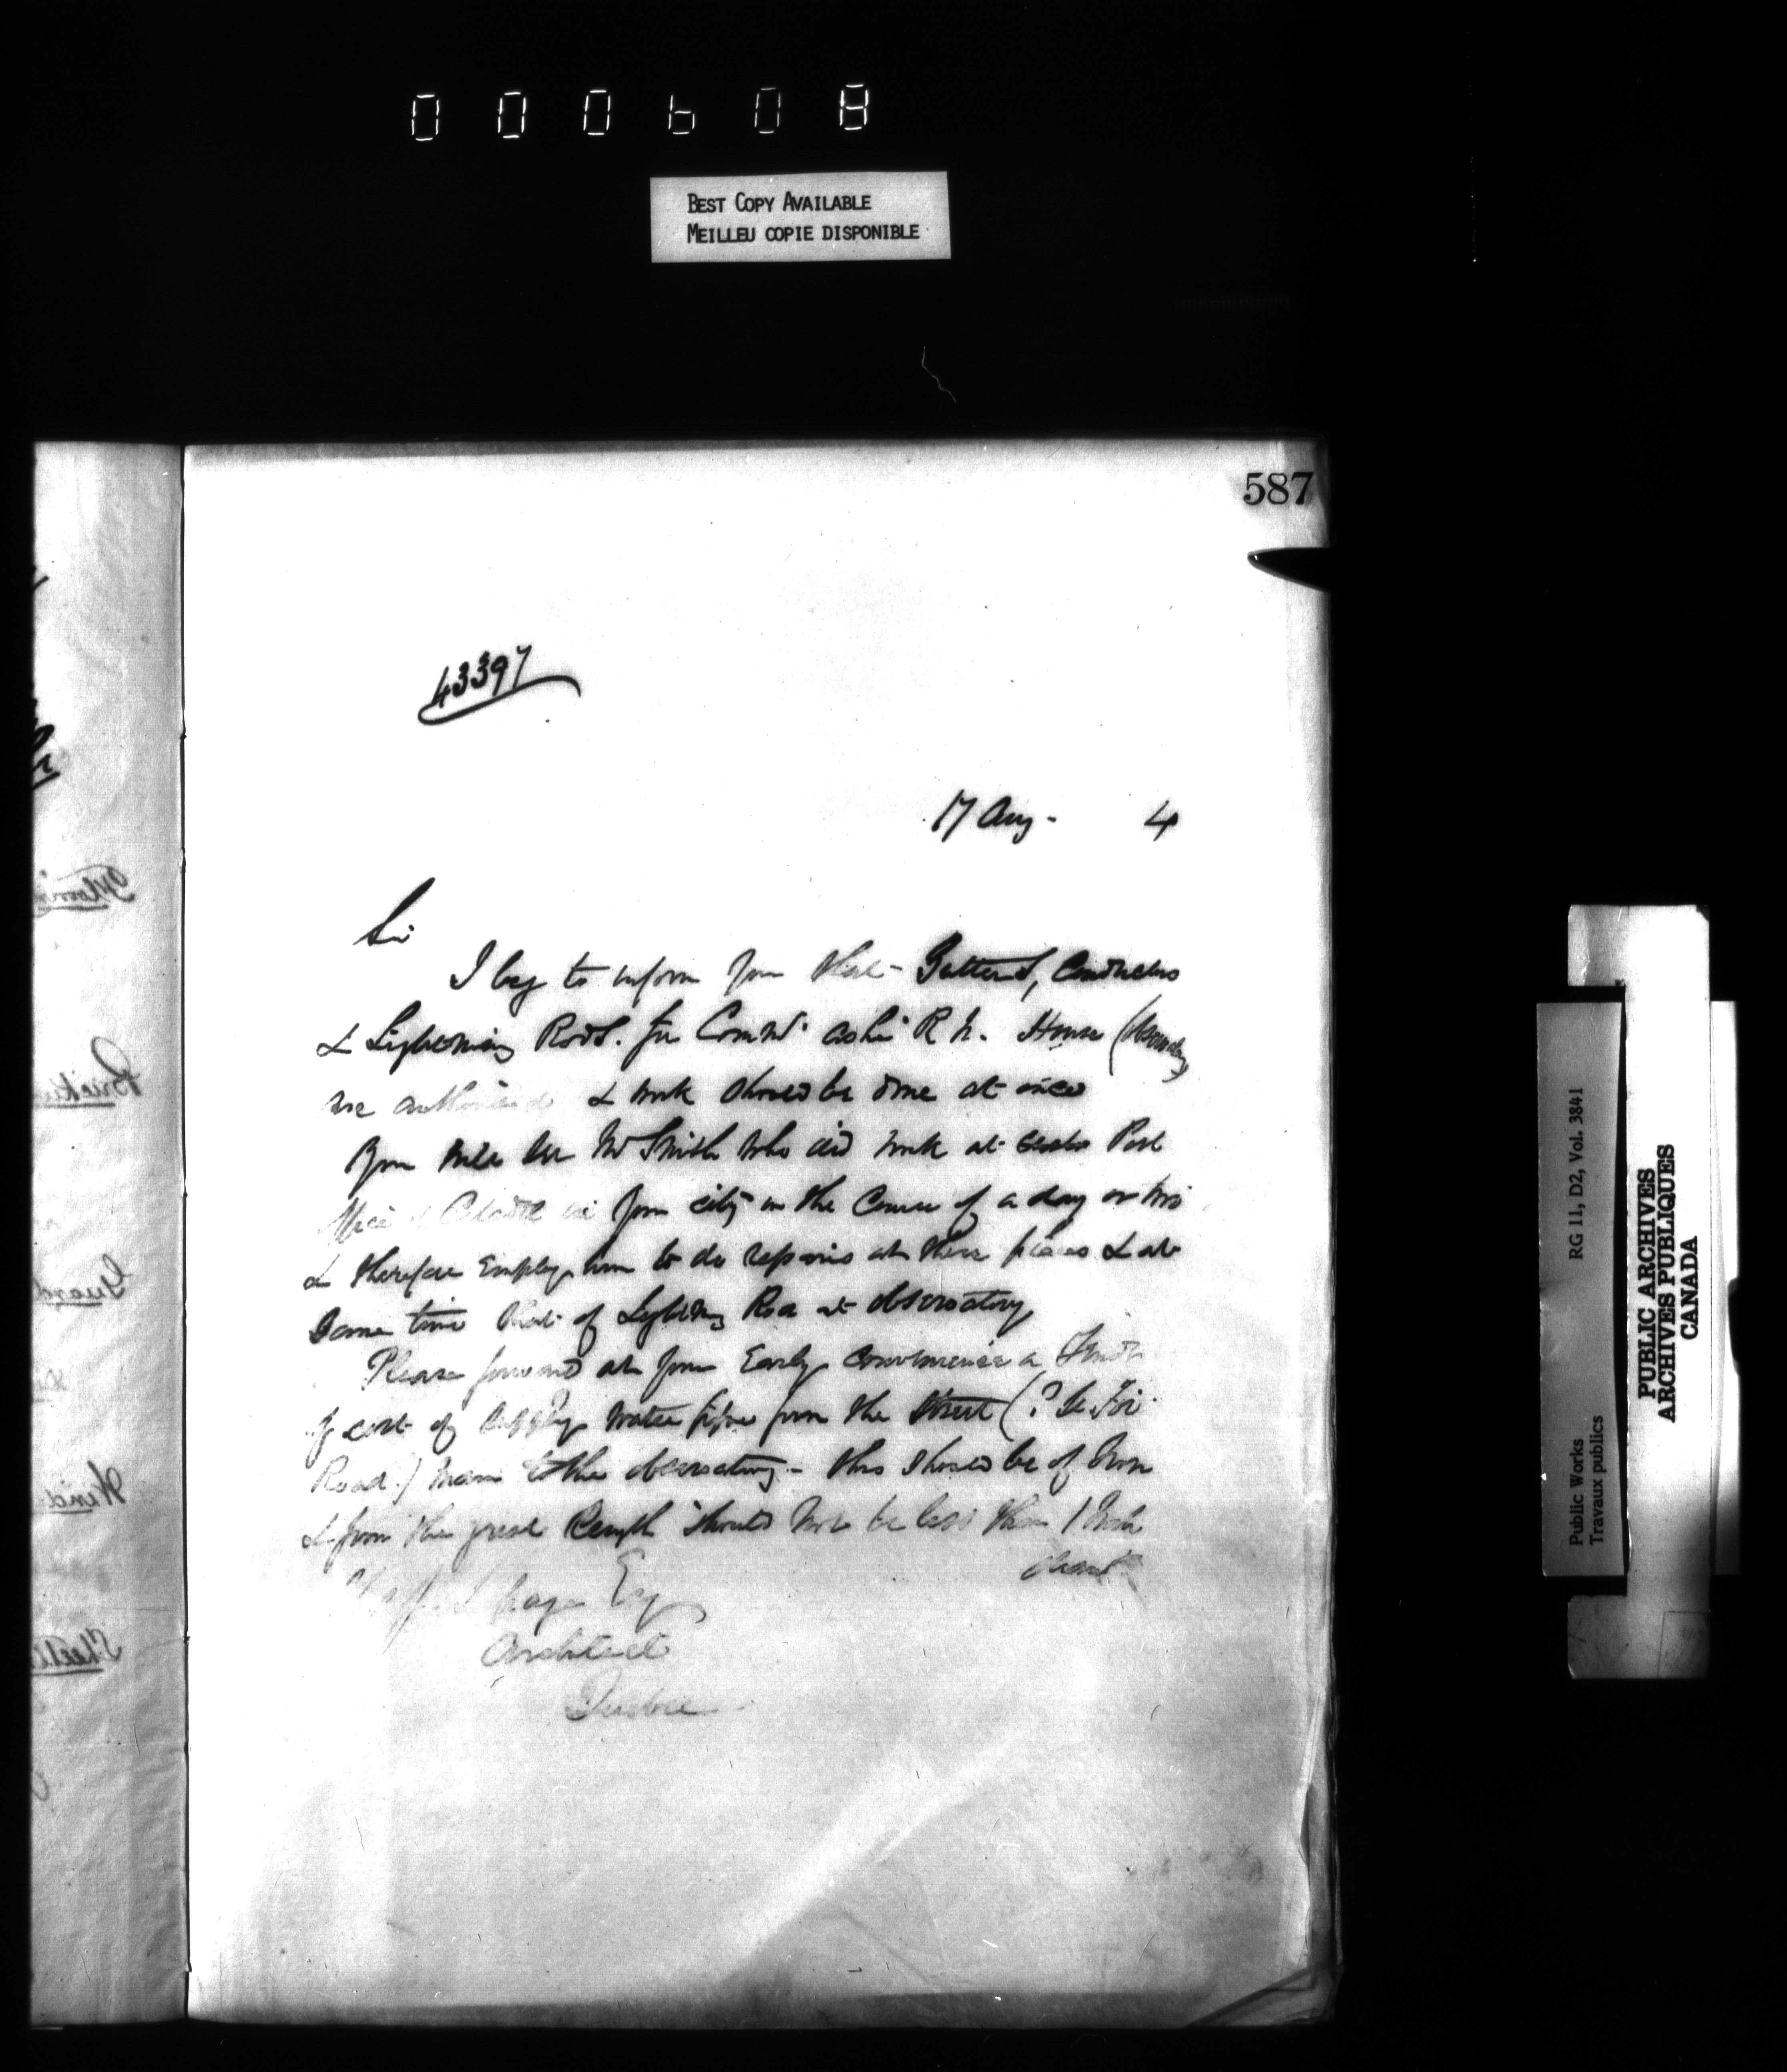 BEST COPY AVAILABLE
MEILLEU COPIE DISPONIBLE
587
43397
17 Aug - 4
Sir
I beg to inform you that - Gutters, Conductors
& Lightning Rods. for Comdr Ashe R N. House (Observatory)
are authorised & work should be done at once
You will see Mr Smith who did work at Post
Office & Citadel in your city in the course of a day or two
& therefore Employ him to do repairs at these places & at
same time that of Lightng Rod at observatory
Please forward at your Early convenience a
of cost of supply water pipe from the Street (? St. Foi
Road.) main to the observatory - this should be of Iron
& from the great length should not be less than 1 Inch
Esq
Architect
Quebec
PUBLIC ARCHIVES
ARCHIVES PUBLIQUES
CANADA
Public Works RG 11, D2, Vol. 3841
Travaux publics